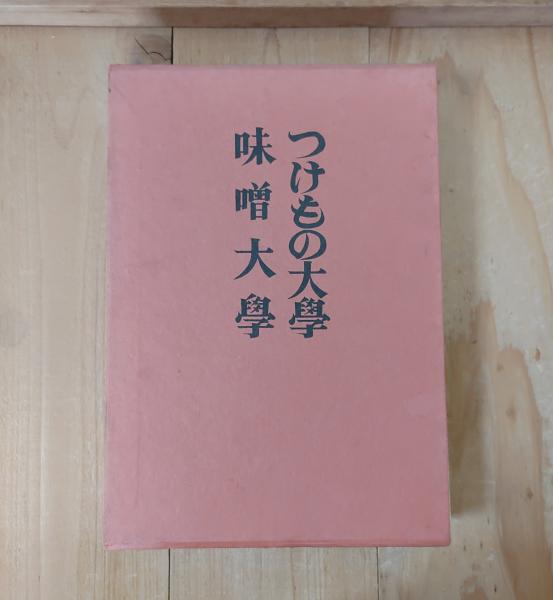 つけもの大學
味噌大學